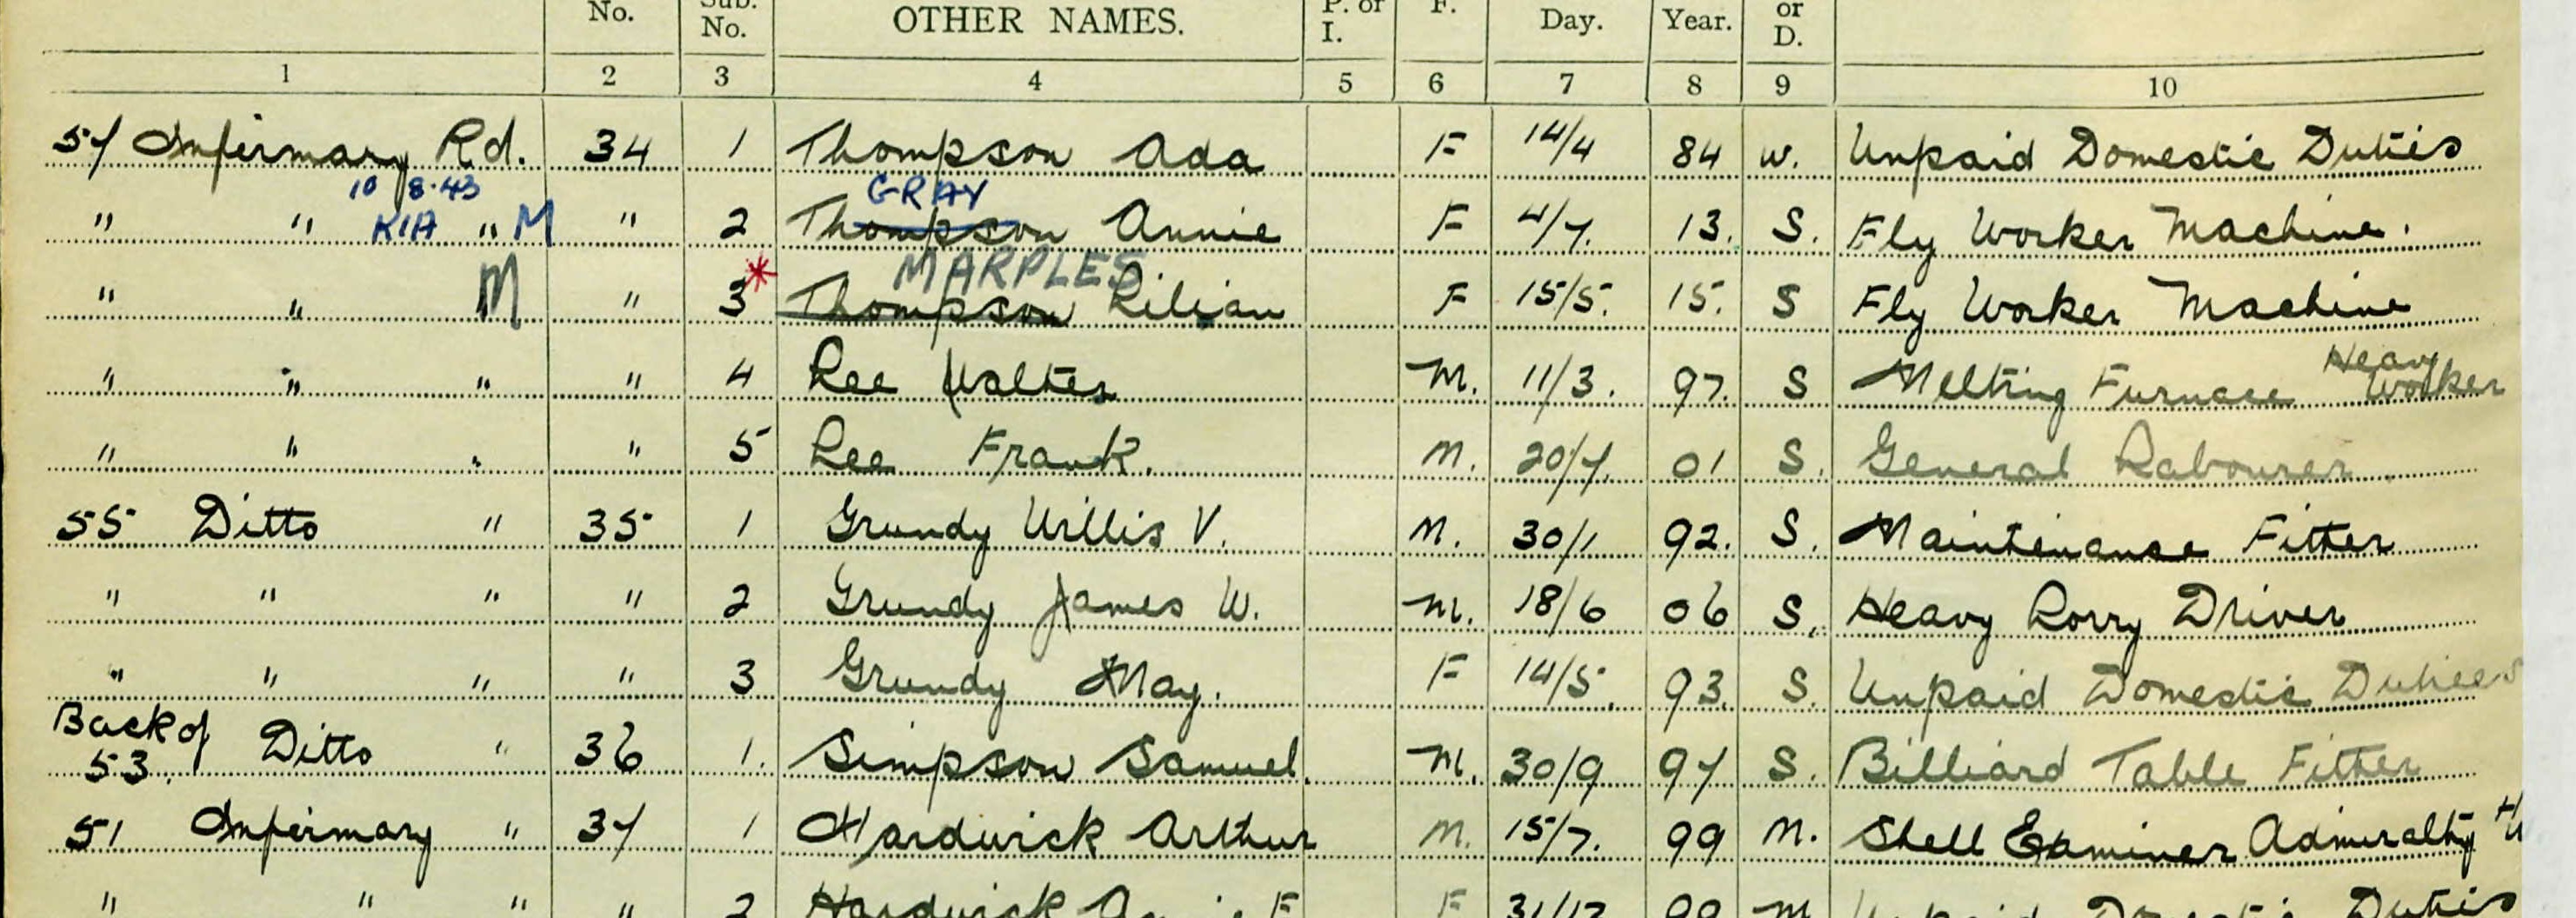 No. Sub. No. OTHER NAMES. P. or I. F. Day. Year. or D.
1 2 3 4 5 6 7 8 9 10
57 Infirmary Rd. 34 1 Thompson Ada F 14/4 84 W. Unpaid Domestic Duties
10 8.43 GRAY
" " KIA " M " 2 Thompson Annie F 4/7. 13. S. Fly Worker Machine.
MARPLES
" " M " 3* Thompson Lilian F 15/5. 15. S Fly Worker Machine
" " " " 4 Lee Walter M. 11/3. 97. S Melting Furnace Heavy Worker
" " " " 5 Lee Frank. M. 20/7. 01 S. General Labourer
55 Ditto " 35 1 Grundy Willis V. M. 30/1 92. S. Maintenance Fitter
" " " " 2 Grundy James W. M. 18/6 06 S. Heavy Lorry Driver
" " " " 3 Grundy May. F 14/5. 93. S. Unpaid Domestic Duties
Back of 53. Ditto " 36 1. Simpson Samuel. M. 30/9 97 S. Billiard Table Fitter
51 Infirmary " 37 1 Hardwick Arthur M. 15/7. 99 M. Shell Examiner Admiralty
" " " " 2 Hardwick F F 31/12 99 M Unpaid Domestic Duties